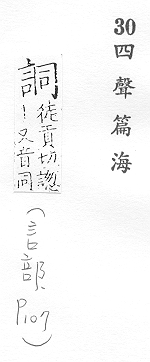 30四聲篇海
詷徒貢切諰
丨又音同
(言部,
P107)